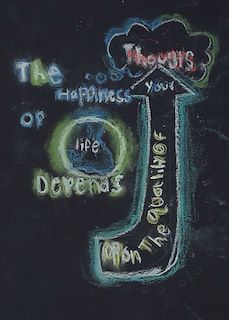 The
Happiness
OF
life
Depends
upon The Quality of
Your
Thougts